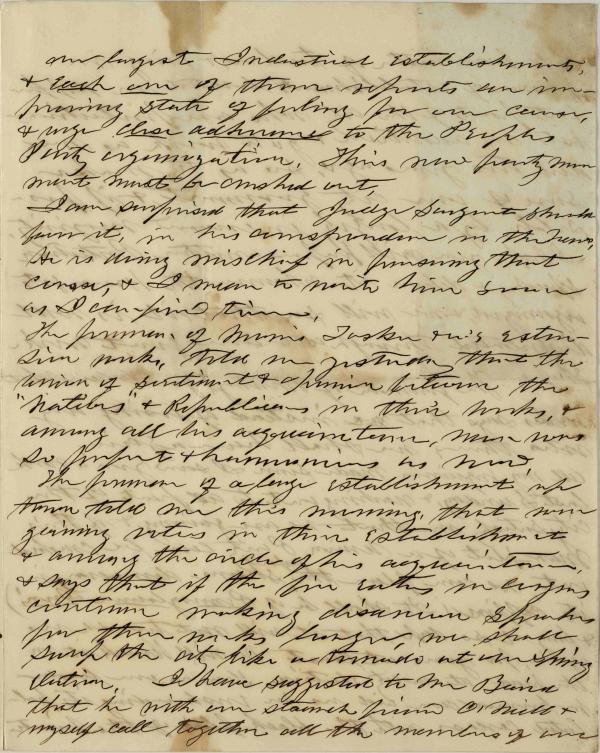 our largest Industrial establishments,
& each one of them reports an im-
proving state of feeling for our cause,
& urge close adherence to the Peoples
Party organization. This new party move
ment must be crushed out.
I am surprised that Judge Sargent should
favor it, in his correspondence in the News,
He is doing mischief in pursuing that
course, & I mean to write him soon
as I can find time.
The foreman of Morris Tasker & Co's exten-
sive works, told me yesterday that the
union of sentiment & opinion between the
"Natives" & Republicans in their works, &
among all his acquaintance, never was
so perfect & harmonious as now.
The foreman of a large establishment up
town told me this morning, that we're
gaining votes in their establishment
& among the circle of his acquaintance,
& says that if the fire eaters in congress
continue making disunion speeches
for three weeks longer, we shall
sweep the city like a tornado at our Spring
election. I have suggested to Mr Baird
that he with our staunch friend O'Neill &
myself call together all the members of our